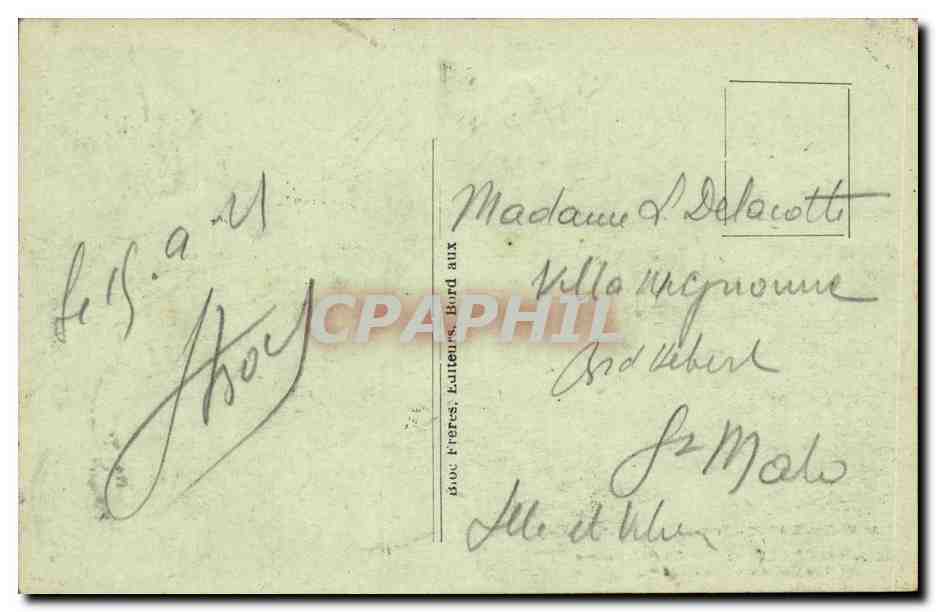 Le 15. a
Madame L Delacotte
Villa Mignonne
Bd Hébert
St Malo
Ille et Vilaine
Bloc Freres, Editeurs, Bord aux
CPAPHIL